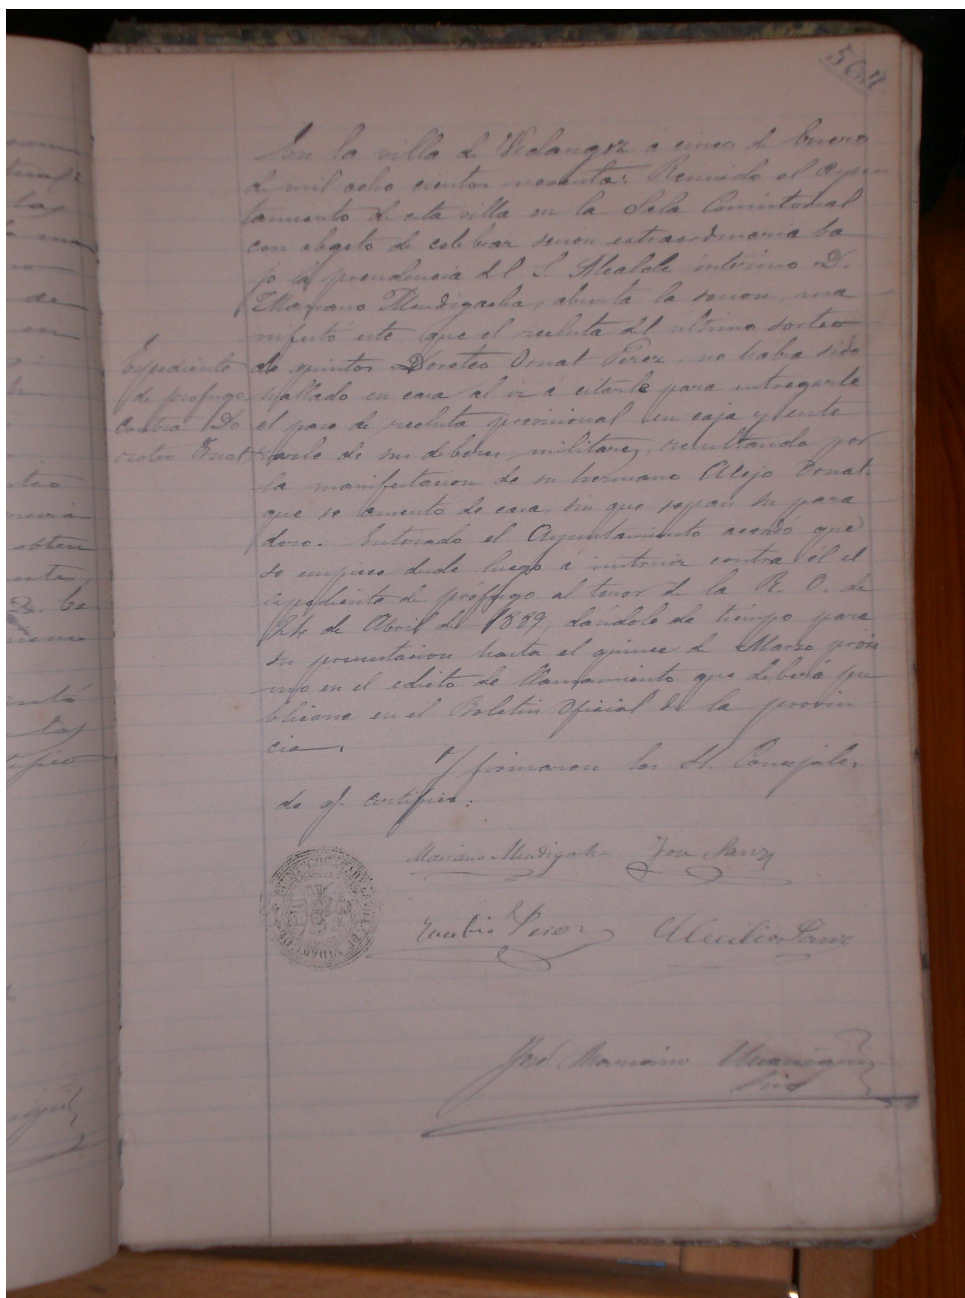 En la villa de Vidangoz a cinco de Enero
de mil ocho cientos noventa: Reunido el Ayun
tamiento de esta villa en la Sala Consistorial
con obgeto de celebrar sesion extraordinaria ba
jo la presidencia del S. Alcalde interino D.
Mariano Mendigacha, abierta la sesion, ma
nifestó este que el recluta del ultimo sorteo
de quintos Doroteo Ornat Perez no habia sido
hallado en casa al ir á citarle para entregarle
el pase de recluta provisional en caja y ente
rarle de sus deberes militares, resultando por
la manifestacion de su hermano Alejo Ornat
que se ausentó de casa sin que sepan su para
dero. Enterado el Ayuntamiento acordó que
se empiece desde luego á instruir contra él el
expediente de prófugo al tenor de la R. O. de
24 de Abril de 1889, dándole de tiempo para
su presentacion hasta el quince de Marzo próxi
mo en el edicto de llamamiento que deberá pu
blicarse en el Boletin Oficial de la provin
cia.
Y firmaron los S.S. Concejales
de q. certifico:
Expediente
de profugo
contra Do
roteo Ornat
Mariano Mendigacha José Sanz
Eusebio Perez Sanz
José Mariano
Srio